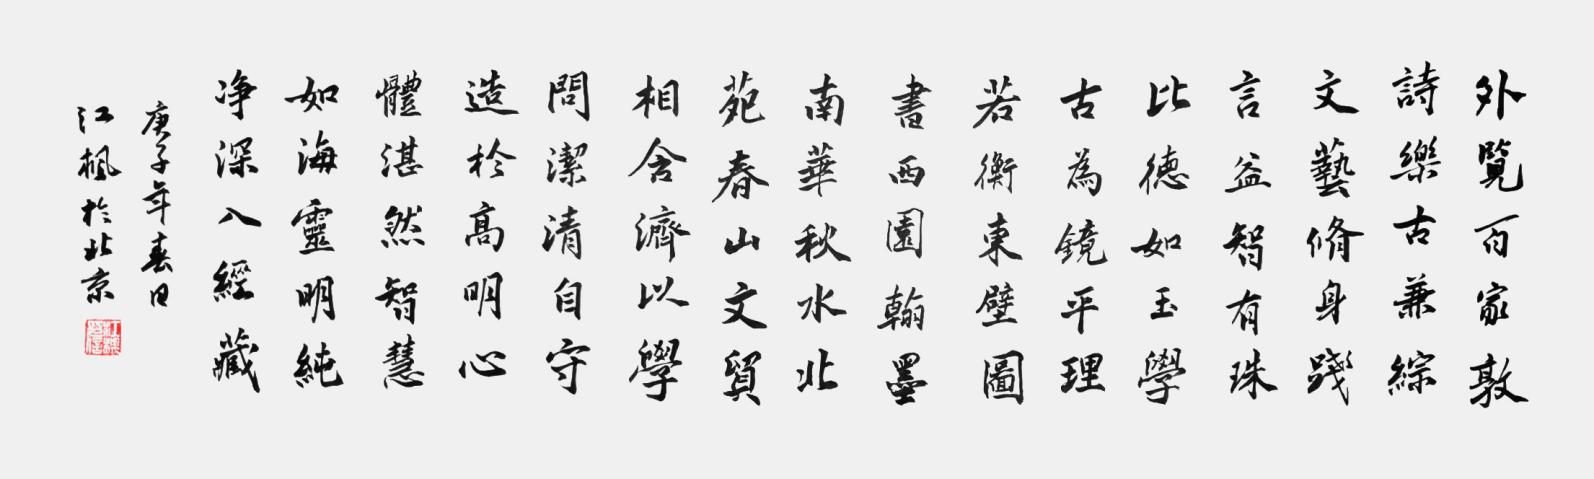 外覽百家敦
詩樂古兼綜
文藝脩身踐
言益智有珠
比德如玉學
古為鏡平理
若衡東壁圖
書西園翰墨
南華秋水北
苑春山文質
相含濟以學
問潔清自守
造於高明心
體湛然智慧
如海靈明純
净深入經藏
庚子年春日
江楓於北京